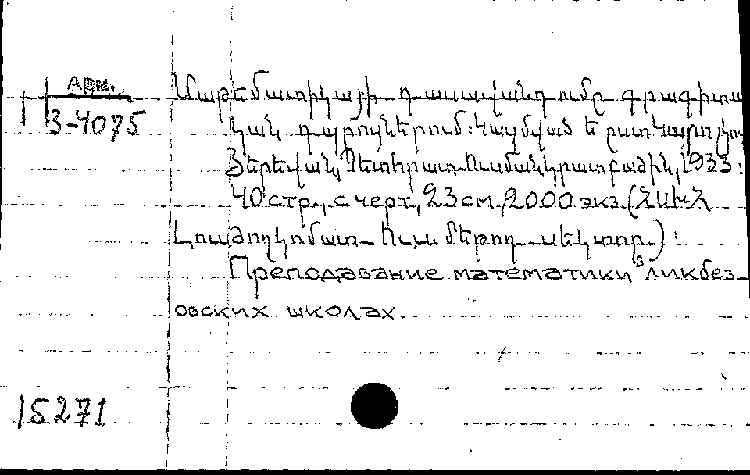 Арм.
3-4075
Մաթեմատիկայի դասավանդումը գրագիտա
կան դպրոցներում: Կազմված է ըստ
Յերեվան, Պետհրատ. Ուսմանկրատ բաժին, 1933:
40 стр., с черт., 23 см, 2000 экз. (ՀՍԽՀ
Լուսժողկոմատ.
Преподавание математики в ликбез-
овских школах.
15271